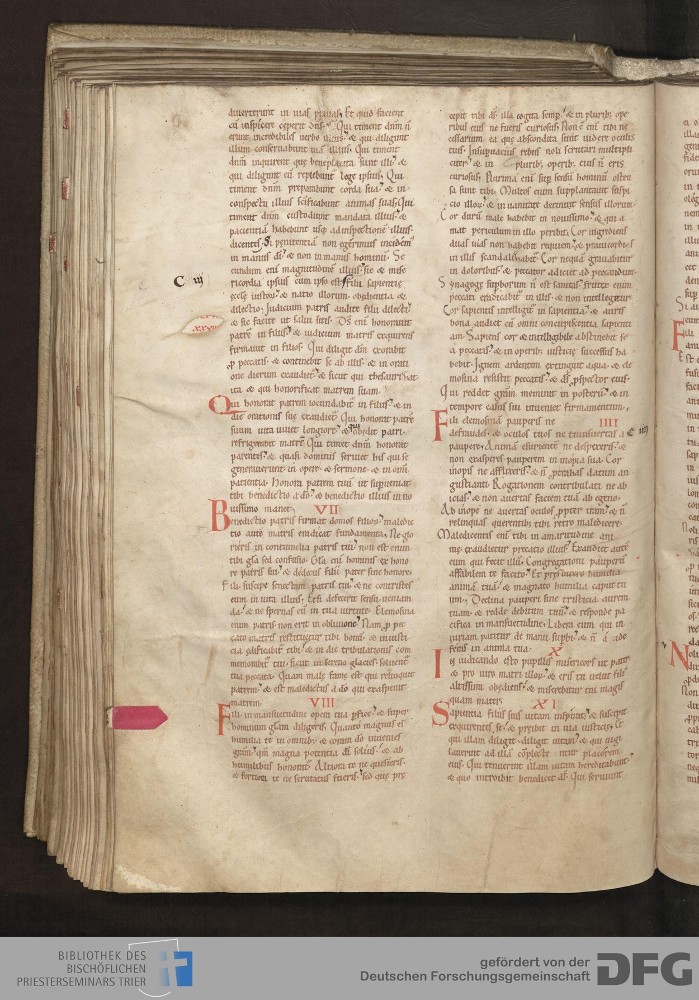 diverterunt in vias pravas; Et quid facient
cū inspicere ceperit dn̄s; Qui timent dn̄m n̄
erunt incredibiles verbo illius; & qui diligunt
illum conservabunt viā illius; Qui timent
dn̄m inquirent que beneplacita sunt illi; &
qui diligunt eū replebunt lege ipsius; Qui
timent dn̄m preparabunt corda sua; & in
conspectu illius scificabunt animas suas; Qui
timent dn̄m custodiunt mandata illius; &
patientiā habebunt usq; ad inspectionē illius;
dicentes; Si penitentiā non egerimus incidem
in manus dī; & non in manus hominū; Se
cundum enī magnitudinē illius; sic & mise
ricordia ipsius cum ipso est; Filii sapientie
C iij
ecclę iustor; & natio illorum obędientia &
dilectio; Judicium patris audite filii dilecti
& sic facite ut salvi sitis; Ds̄ enī honoravit
patrē in filiis; & iudicium matris exquirens
firmavit in filios; Qui diligit dm̄ exorabit
p̱ peccatis; & continebit se ab illis; & in orati
one dierum exaudiet; & sicut qui thesaurizat
ita & qui honorificat matrem suam;
Qui honorat patrem iocundabit in filiis; & in
die orationis suę exaudiet; Qui honorat patrē
suum vita vivet longiore; & qui obędit patri
refrigerabit matrē; Qui timet dn̄m honorat
parentes; & quasi dominis serviet his qui se
genuerunt in opere & sermone & in omī
patientia; Honora patrem tuū ut superveniat
tibi benedictio a do; & benedictio illius in no
vissimo manet; VII
Benedictio patris firmat domos filiorum; maledic
tio autē matris eradicat fundamenta; Ne glo
rieris in contumelia patris tui; non est enim
tibi gla sed confusio; Gla enī hominis ex hono
re patris sui; & dedecus filii pater sine honore;
Fili suscipe senectam patris tui; & ne contristes
eum in vita illius; Et si defecerit sensu veniam
da; & ne spernas eū in tua virtute; Elemosina
enim patris non erit in oblivione; Nam p̱ pec
cato matris restituetur tibi bonū; & in iusti
cia ędificabit tibi; & in die tribulationis com
memorabit tui; sicut in sereno glacies solvent
tua peccata; Quam malę famę est qui relinquit
patrem; & est maledictus a do qui exasperat
matrem; VIII
Fili in mansuetudine opera tua pfice; & super
hominum glam diligeris; Quanto magnus es
humilia te in omnibus; & coram do invenies
gram; qm̄ magna potentia dī solius; & ab
humilibus honorat; Altiora te ne quesieris;
& fortiora te ne scrutatus fueris; sed que pre
cepit tibi ds̄ illa cogita semp; & in pluribus ope
ribus eius ne fueris curiosus; Non ē enī tibi ne
cessarium ea que abscondita sunt videre oculis
tuis; In supervacuis rebus noli scrutari multipli
citer; & in pluribus operibus eius n̄ eris
curiosus; Plurima enī sup sensū hominū osten
sa sunt tibi; Multos enim supplantavit suspi
cio illorum; & in vanitate detinuit sensus illorum;
Cor durū male habebit in novissimo; & qui a
mat periculum in illo peribit; Cor ingrediens
duas vias non habebit requiem; & pravicordis
in illis scandalizabit; Cor nequā gravabitur
in doloribus; & peccator adiciet ad peccandum;
Synagogę superborum n̄ est sanitas; frutex enim
peccati eradicabit in illis; & non intelligetur;
Cor sapientis intelligit in sapientia; & auris
bona audiet cū omni concupiscentia sapienti
am; Sapiens cor & intelligibile abstinebit se
a peccatis; & in operibus iusticię successus ha
bebit; Ignem ardentem extinguit aqua; & ele
mosina resistit peccatis; & ds̄ prospector eius
Qui reddet gram meminit in posterū; & in
tempore casus sui inveniet firmamentum;
Fili elemosinā pauperis ne IIII
defraudes; & oculos tuos ne transvertas a
C iiij
paupere; Animā esurientē ne despexeris; &
non exasperes pauperem in inopia sua; Cor
inopis ne afflixeris; & n̄ protrahas datum an
gustianti; Rogationem contribulati ne ab
icias; & non avertas faciem tuā ab egeno;
Ab inope ne avertas oculos propter iram; & n̄
relinquas querentibus tibi retro maledicere;
Maledicentis enī tibi in amaritudine ani
mę exaudietur precatio illius; Exaudiet autē
eum qui fecit illū; Congregationi pauperū
affabilem te facito; Et presbitero humilia
animā tuā; & magnato humilia caput tu
um; Declina pauperi sine tristicia aurem
tuam; & redde debitum tuū; & responde pa
cifica in mansuetudine; Libera eum qui in
iuriam patitur de manu superbi; & n̄ acide
feras in anima tua; X
In iudicando esto pupillis misericors ut pater
& pro viro matri illorum; & eris tu velut filius
altissimi obędiens; & miserebitur tui magis
quam mater; XI
Sapientia filiis suis vitam inspirat; & suscipit
exquirentes se; & preibit in via iusticię; Et
qui illam diligit diligit vitam; & qui vigi
laverint ad illā complectentur placorem
eius; Qui tenuerint illam vitam hereditabunt;
& quo introibit benedicet ds̄; Qui serviunt
BIBLIOTHEK DES
BISCHÖFLICHEN
PRIESTERSEMINARS TRIER
gefördert von der
Deutschen Forschungsgemeinschaft
DFG